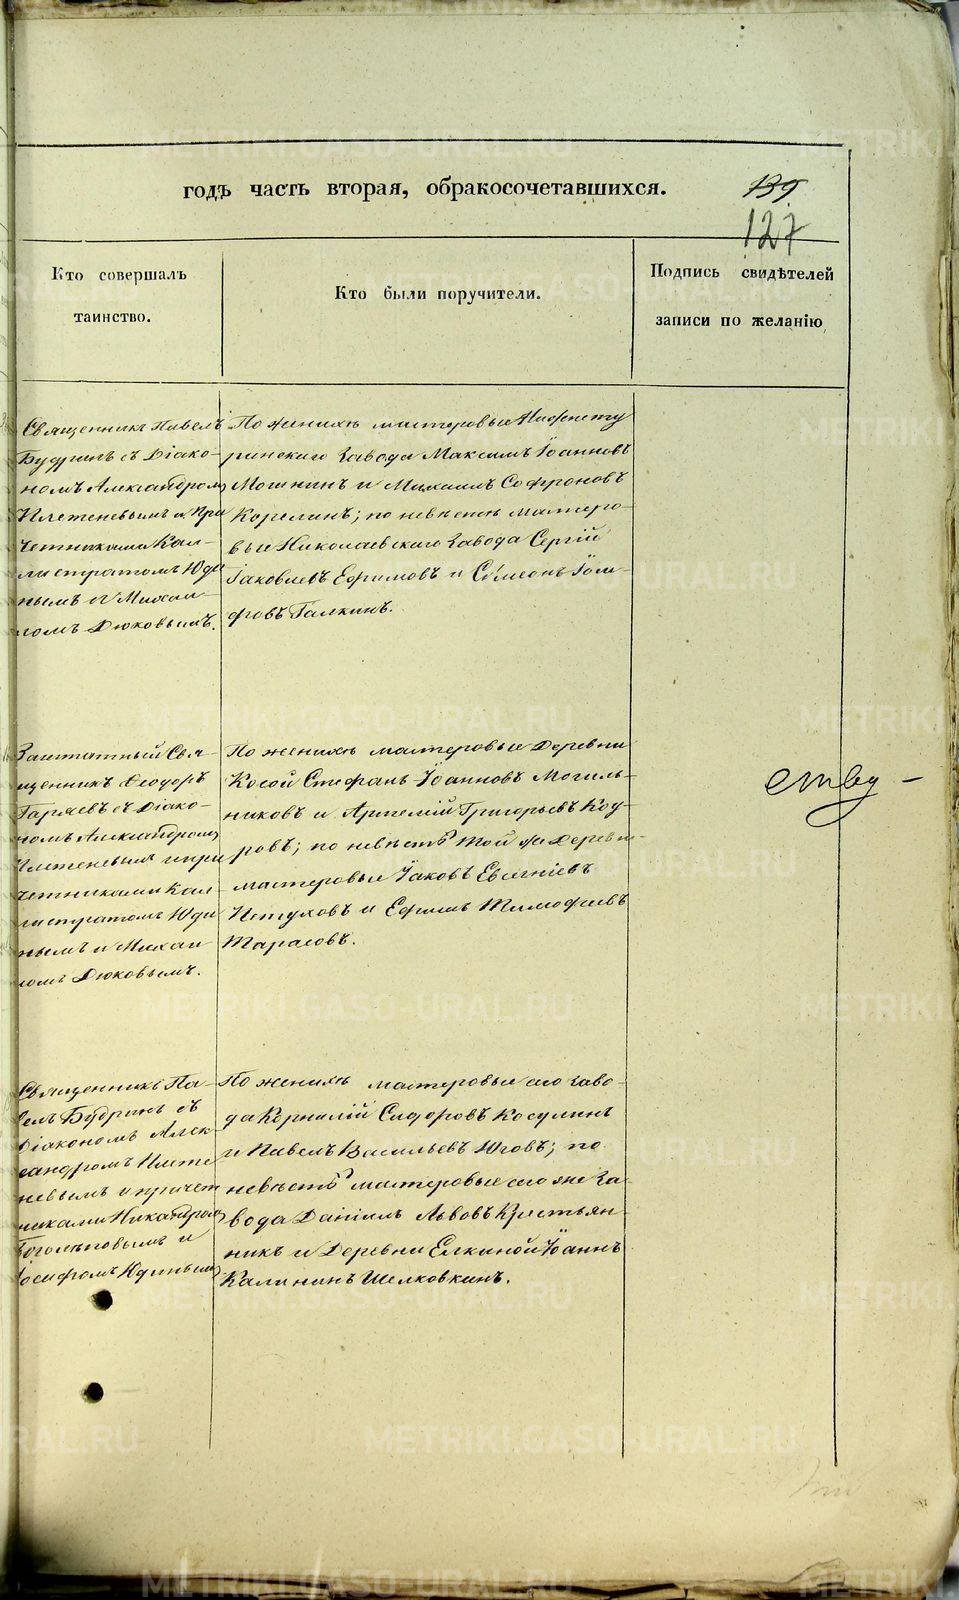 годъ часть вторая, обракосочетавшихся.
139
127
Кто совершалъ
таинство.
Кто были поручители.
Подпись свидѣтелей
записи по желанію
Священникъ Павелъ
Будринъ съ Діако-
номъ Александромъ
Плетеневымъ и при
четниками Кал-
листратомъ Юди
нымъ и Михаи
ломъ Дюковымъ.
По женихѣ мастеровые Нижнету
ринскаго завода Максимъ Іоанновъ
Мошнинъ и Михаилъ Софроновъ
Корелинъ; по невѣстѣ мастеро-
вые Николаевскаго завода Сергій
Іаковлевъ Ефимовъ и Сѵмеонъ Іоси-
фовъ Галкинъ.
Заштатный Свя-
щенникъ Ѳеодоръ
Гаряевъ съ Діако-
номъ Александромъ
Плетеневымъ и при
четниками Кал-
листратомъ Юди
нымъ и Михаи
ломъ Дюковымъ.
По женихѣ мастеровые Деревни
Косой Стефанъ Іоанновъ Могиль-
никовъ и Артемій Григорьевъ Код
ровъ; по невѣстѣ той же Деревни
мастеровые Іаковъ Евгеніевъ
Петуховъ и Ефимъ Тимофеевъ
Тарасовъ.
ству -
Священникъ Па-
велъ Будринъ съ
Діакономъ Алек
сандромъ Плете
невымъ и причет
никами Никандромъ
и
Іосифомъ Юдинымъ
По женихѣ мастеровые сего заво-
да Корнилій Сидоровъ Косулинъ
и Павелъ Васильевъ Юговъ; по
невѣстѣ мастеровые сего же за-
вода Даніилъ Львовъ Крестьян-
никъ и Деревни Елкиной Іоаннъ
Калининъ Шелковкинъ.
METRIKI.GASO-URAL.RU